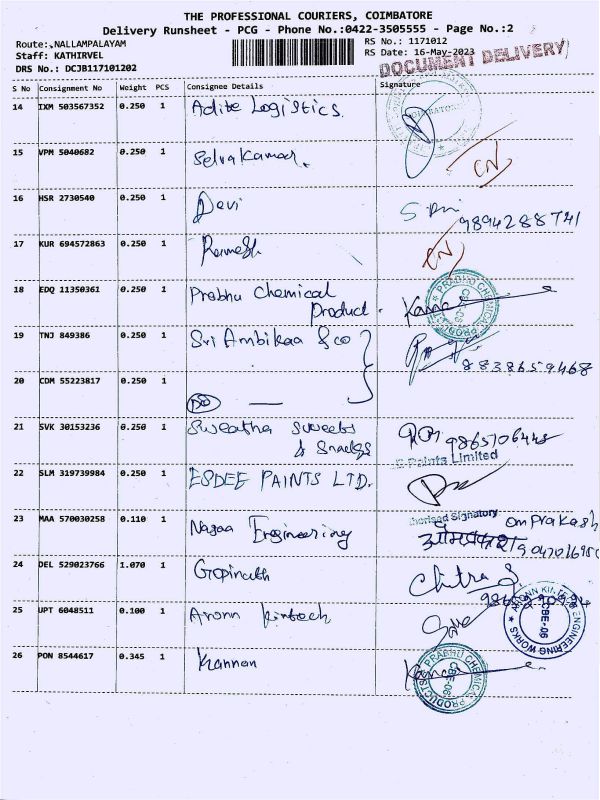 THE PROFESSIONAL COURIERS, COIMBATORE
Delivery Runsheet - PCG - Phone No.:0422-3505555 - Page No.:2
Route: NALLAMPALAYAM
Staff: KATHIRVEL
DRS No.: DCJB117101202
RS No.: 1171012
RS Date: 16-May-2023
DOCUMENT DELIVERY
S No Consignment No Weight PCS Consignee Details Signature
14 IXM 503567352 0.250 1 Adite Logistics
15 VPM 5040682 0.250 1 Selvakumar. CN
16 HSR 2730540 0.250 1 Devi 9894288741
17 KUR 694572863 0.250 1 Ramesh CN
18 EDQ 11350361 0.250 1 Prabhu Chemical
Product.
PRABHU CHEMICAL PRODUCTS CBE-06
19 TNJ 849386 0.250 1 Sri Ambikaa & co
8838659468
20 CDM 55223817 0.250 1 DO —
21 SVK 30153236 0.250 1 Sweatha Sweets
& Snacks
22 SLM 319739984 0.250 1 ESDEE PAINTS LTD.
Paints Limited
Signatory
23 MAA 570030258 0.110 1 Nagaa Engineering
Omprakash
ओमप्रकाश
24 DEL 529023766 1.070 1 Gopinath Chitra S
25 UPT 6048511 0.100 1 Aronn Kintech
ENGINEERING WORKS CBE-06
26 PON 8544617 0.345 1 Kannan
PRABHU CHEMICAL PRODUCTS CBE-06